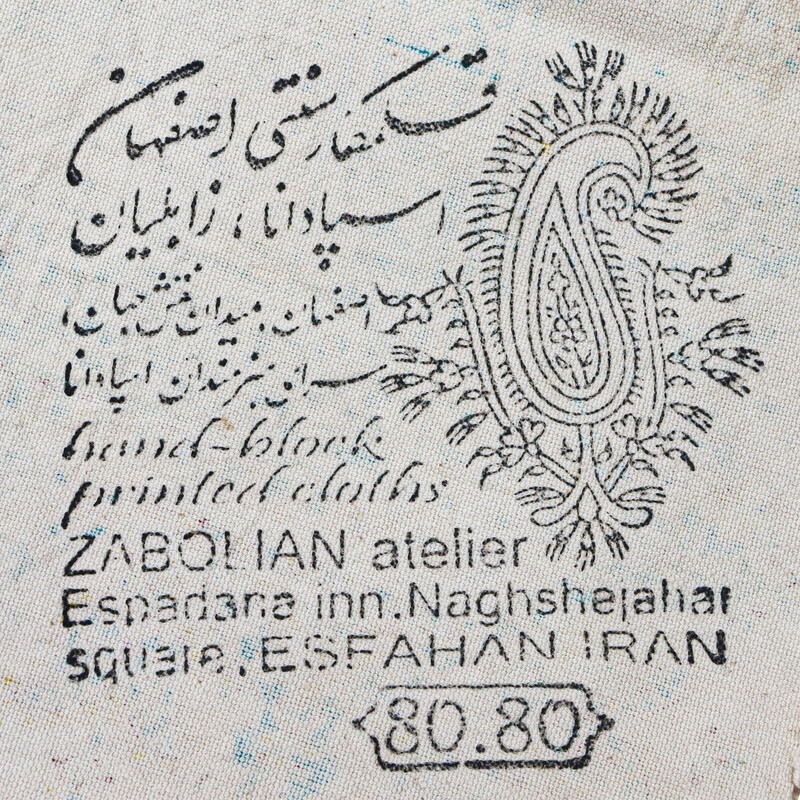 قلمکار سنتی اصفهان
اسپادانا، زابلیان
اصفهان، میدان نقش جهان،
سرای هنرمندان اسپادانا
hand-block
printed cloths
ZABOLIAN atelier
Espadana inn.Naghshejahan
square, ESFAHAN IRAN
80.80